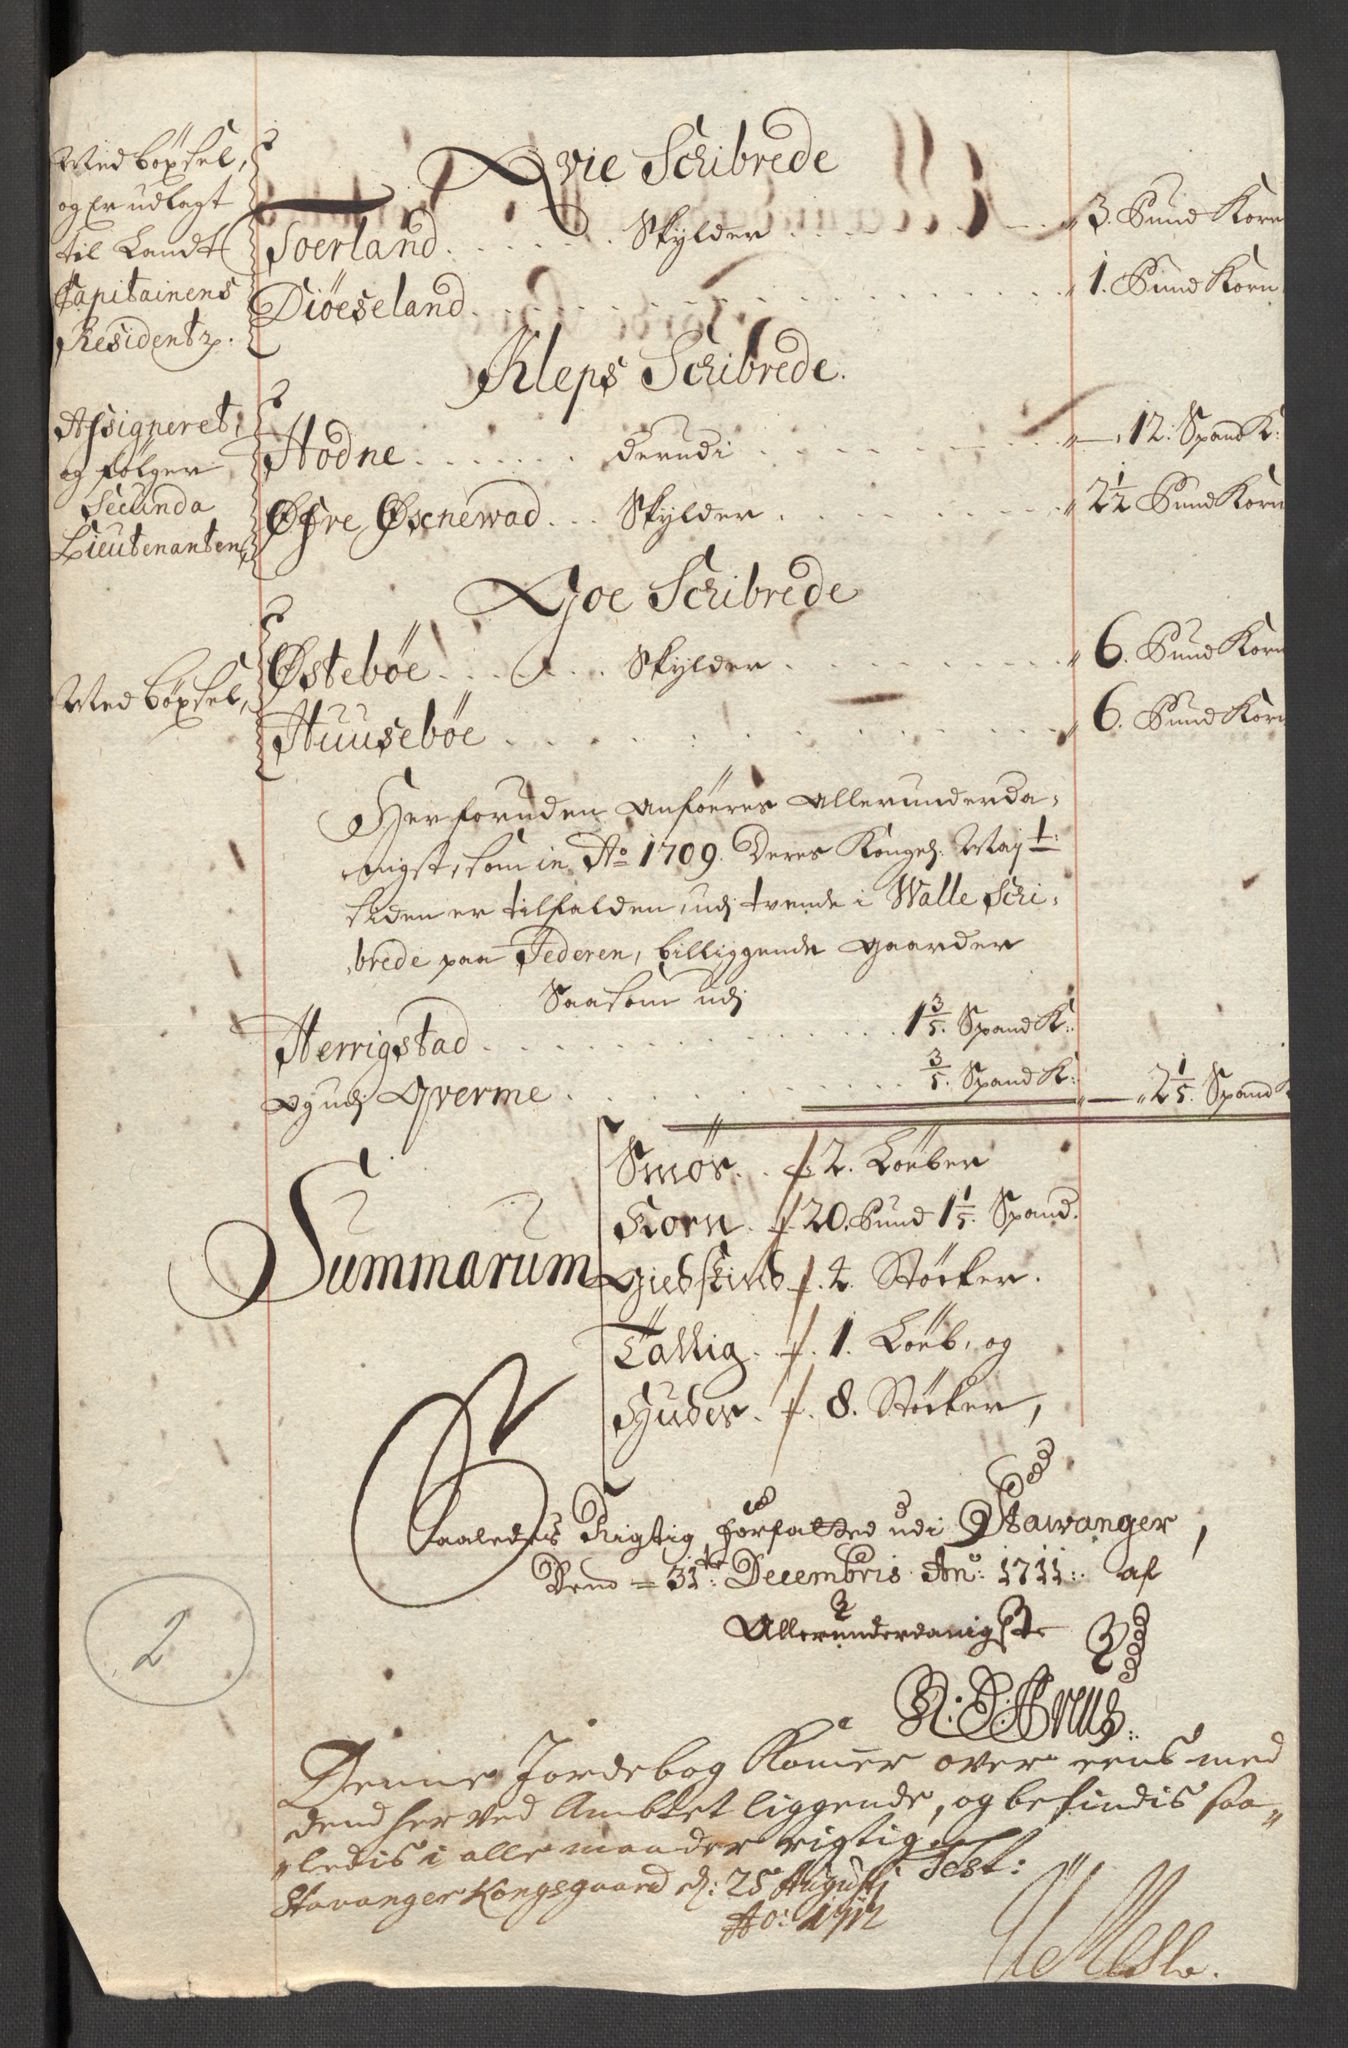 Qvie Schibrede
Med böxsel,
og Er udlagt
til Landt
Capitainens
Residentz.
Soerland . . . . . . Skylder . . . . . 3. Pund Korn
Diöeseland . . . . . . 1. Pund Korn
Kleps Schibrede.
Assigneret,
og følger
Secunda
Lieutenanten,
Hodne . . . . . . derudi . . . . . 12. Spand K:
Øfre Øschewad . . . Skylder . . . . . 2 1/2 Pund Korn
Goe Schibrede
Med böxsel,
Østebøe . . . . . . Skylder . . . . . 6. Pund Korn
Huusebøe . . . . . . 6. Pund Korn
Herforuden Anföeres Allerunderda-
nigst, som in Ao 1709. Deres Kongel. May t:
siden er tilfalden, udj tvende i Walle Schi-
brede paa Jederen, billiggende gaarder
Saasom udj
Herrigstad . . . . . . 1 3/5. Spand K:
og udj Qverme . . . . . . 3/5. Spand K: 2 1/5. Spand K
Summarum
Smör . . 2. Löeber
Korn . 20. Pund 1 1/5. Spand.
Giedskind . 4. Stöcker.
Tallig . 1. Löeb, og
Huder . 8. Stöcker,
Saaledes Rigtig forfatted udi Stawanger,
Dend 31te: Decembris Ano: 1711: af
Allerunderdanigste
Denne Jordebog Komer over eens med
dend her ved Ambtet liggende, og befindis saa-
ledis i alle maader rigtig
Test:
Stavanger Kongsgaard d: 25 Augustj
Ao: 1712
2